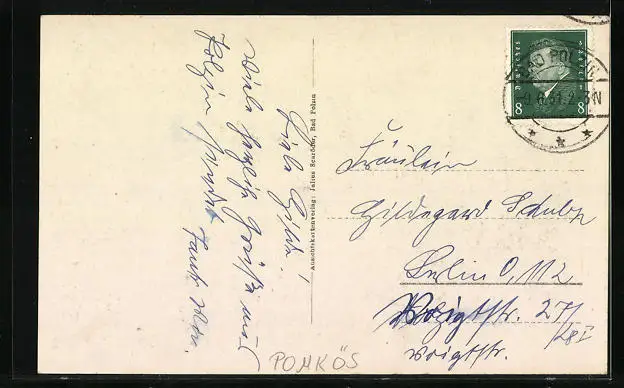 Liebe Hilde!
Viele herzliche Grüße aus
Polzin sendet
Tante
Ansichtskartenverlag: Julius Scaröder, Bad Polzin
Fräulein
Hildegard Schulz
Berlin O, 112
Voigtstr. 27/
28 I
Voigtstr.
POMKÖS
DEUTSCHES REICH
8 8
BAD POLZIN
9.6.31.2-3N